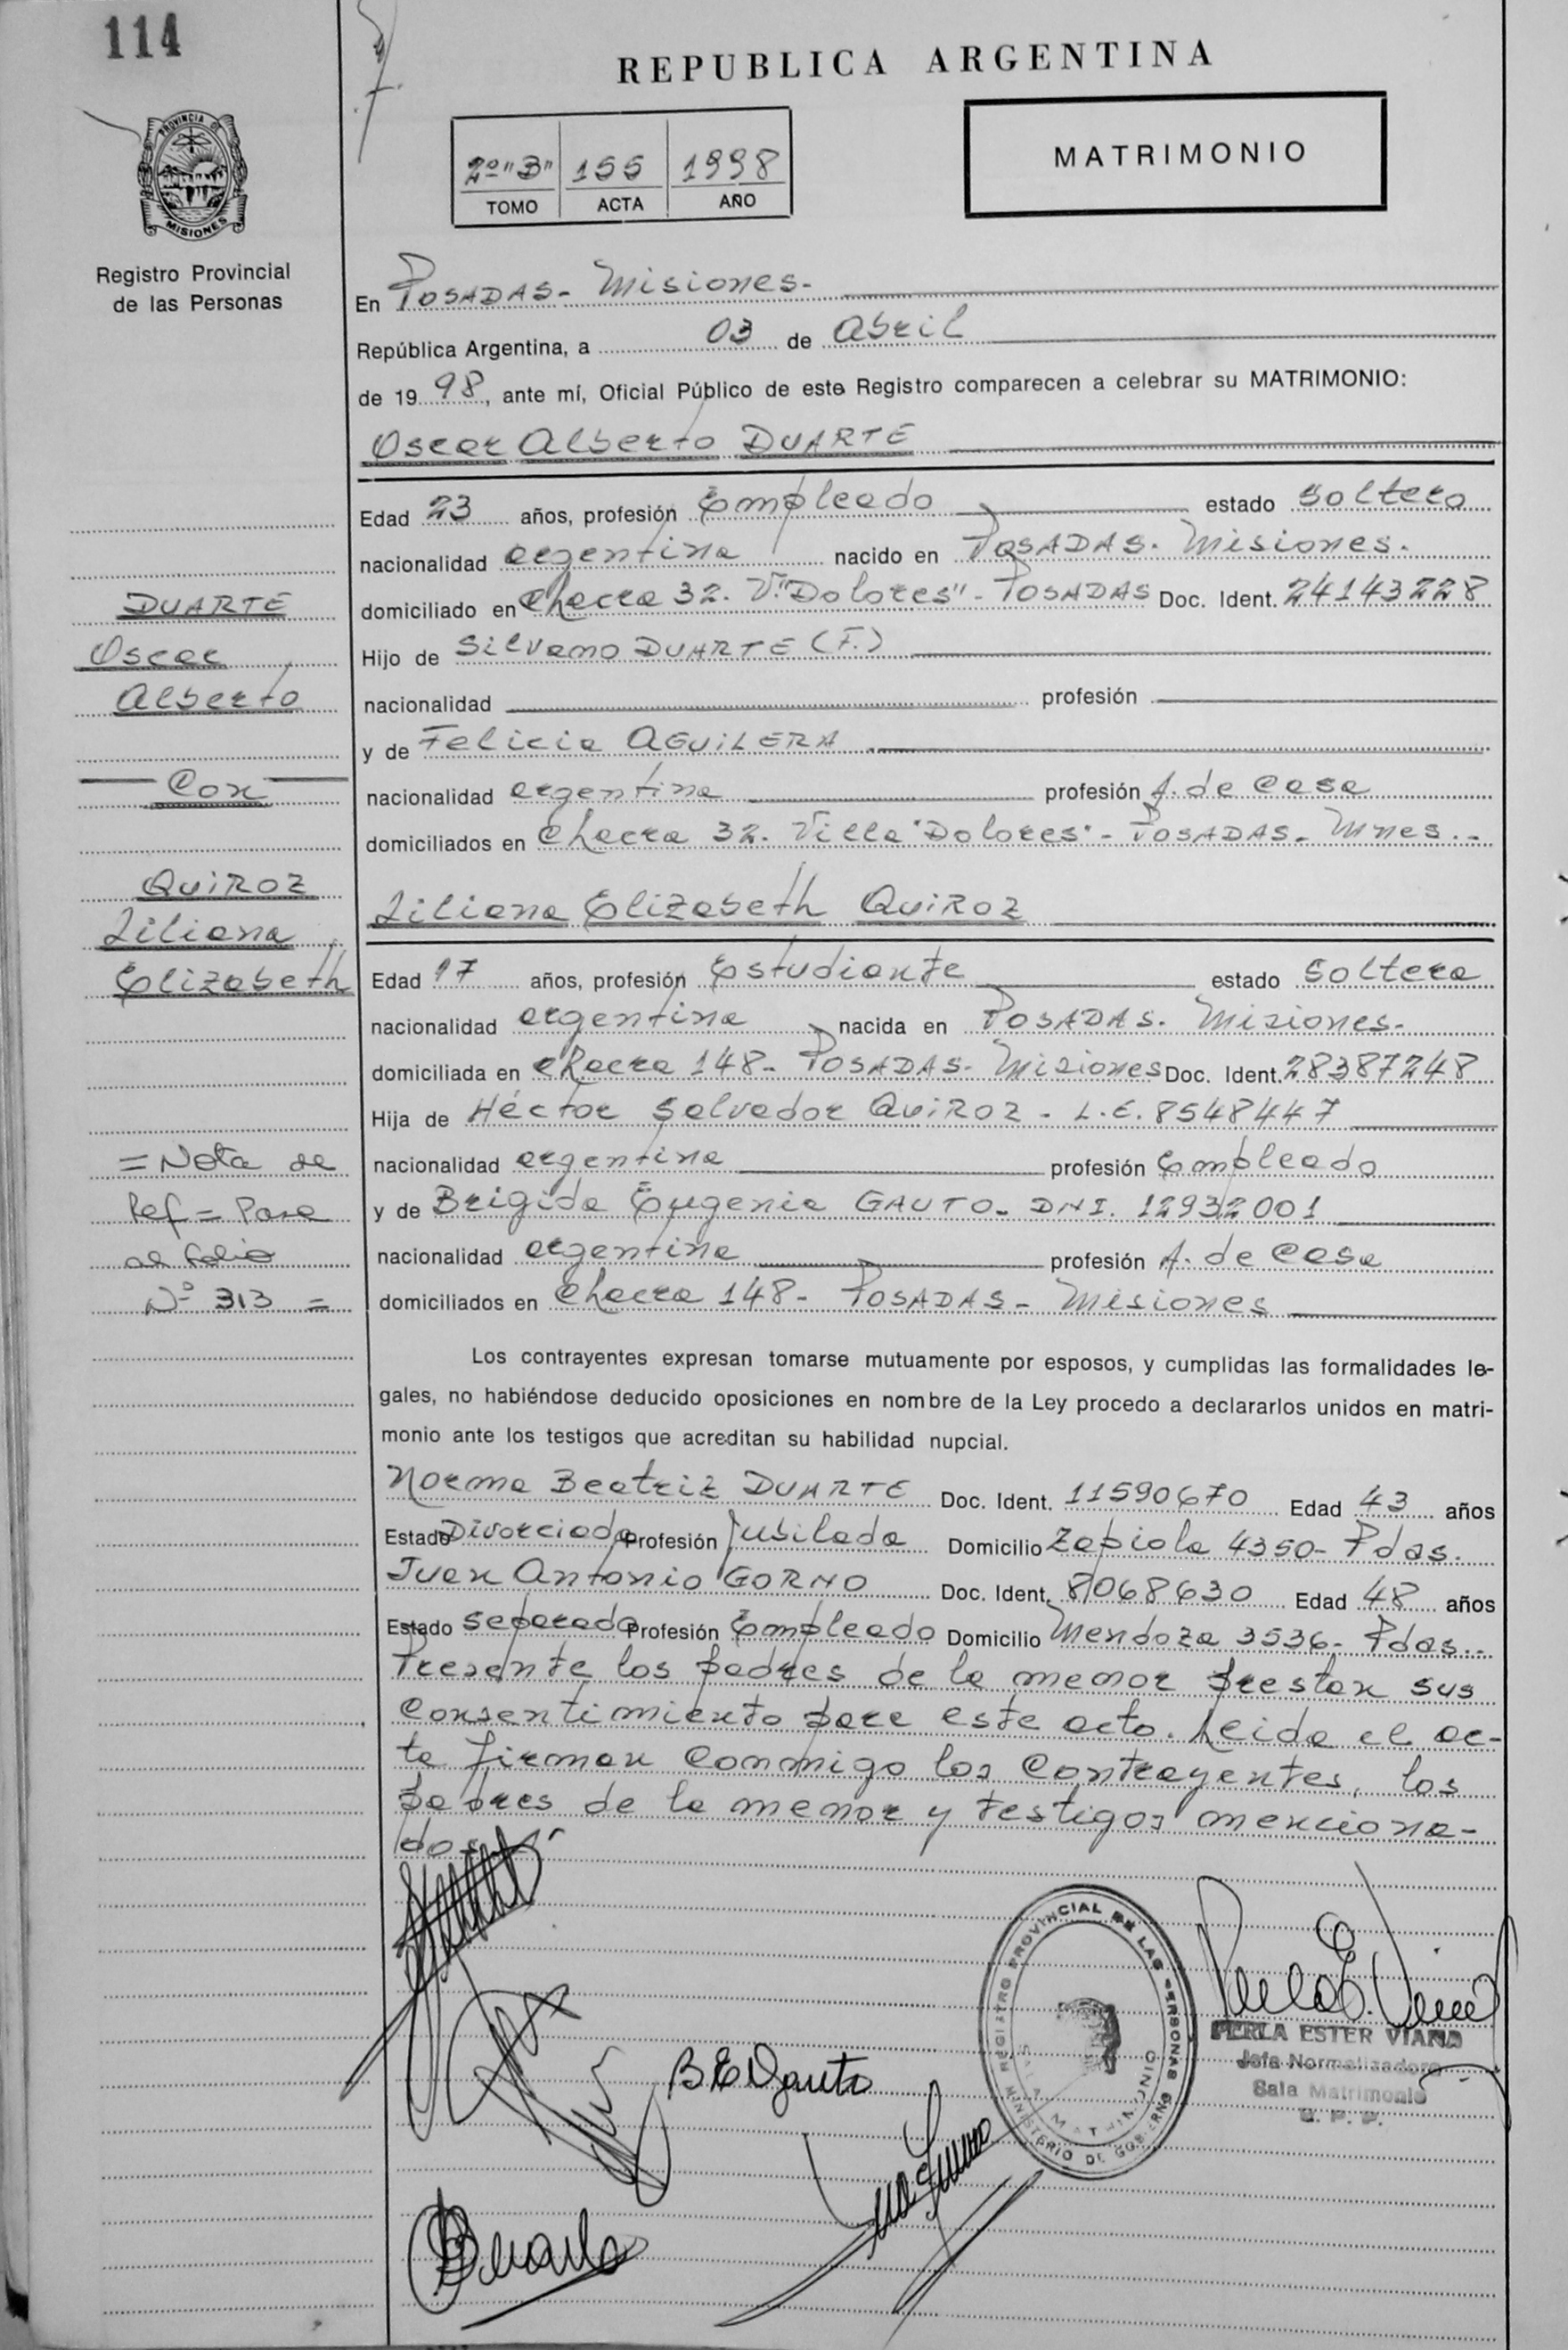 114
REPUBLICA ARGENTINA
PROVINCIA DE
MISIONES
Registro Provincial
de las Personas
2º "B" 155 1998
TOMO ACTA AÑO
MATRIMONIO
En POSADAS- Misiones-
República Argentina, a 03 de Abril
de 1998, ante mí, Oficial Público de este Registro comparecen a celebrar su MATRIMONIO:
Oscar Alberto DUARTE
Edad 23 años, profesión Empleado estado Soltero
nacionalidad argentina nacido en POSADAS- Misiones.
domiciliado en Chacra 32. V."Dolores"- POSADAS Doc. Ident. 24143228
Hijo de Silvano DUARTE (F.)
nacionalidad profesión
y de Felicia AGUILERA
nacionalidad argentina profesión A. de Casa
domiciliados en Chacra 32. Villa "Dolores"- POSADAS- Mnes.-
Liliana Elizabeth QUIROZ
Edad 17 años, profesión Estudiante estado Soltera
nacionalidad argentina nacida en POSADAS- Misiones-
domiciliada en Chacra 148- POSADAS- Misiones Doc. Ident. 28387248
Hija de Héctor Salvador QUIROZ - L.E. 8548447
nacionalidad argentina profesión Empleado
y de Brigida Eugenia GAUTO- DNI. 12932001
nacionalidad argentina profesión A. de Casa
domiciliados en Chacra 148- POSADAS- Misiones
DUARTE
Oscar
Alberto
Con
QUIROZ
Liliana
Elizabeth
=Nota de
Ref= Pasa
al folio
Nº 313 =
Los contrayentes expresan tomarse mutuamente por esposos, y cumplidas las formalidades le-
gales, no habiéndose deducido oposiciones en nombre de la Ley procedo a declararlos unidos en matri-
monio ante los testigos que acreditan su habilidad nupcial.
Norma Beatriz DUARTE Doc. Ident. 11590670 Edad 43 años
Estado Divorciada Profesión Jubilada Domicilio Zapiola 4350- Pdas.
Juan Antonio GORNO Doc. Ident. 8068630 Edad 48 años
Estado Separado Profesión Empleado Domicilio Mendoza 3536- Pdas.-
Presente los padres de la menor prestan sus
Consentimiento para este acto. Leida el ac-
ta firman Conmigo los Contrayentes, los
padres de la menor y testigos menciona-
dos.
B E Gauto
REGISTRO PROVINCIAL DE LAS PERSONAS
MINISTERIO DE GOBIERNO
SALA MATRIMONIO
PERLA ESTER VIANA
Jefa Normalizadora
Sala Matrimonio
R. P. P.